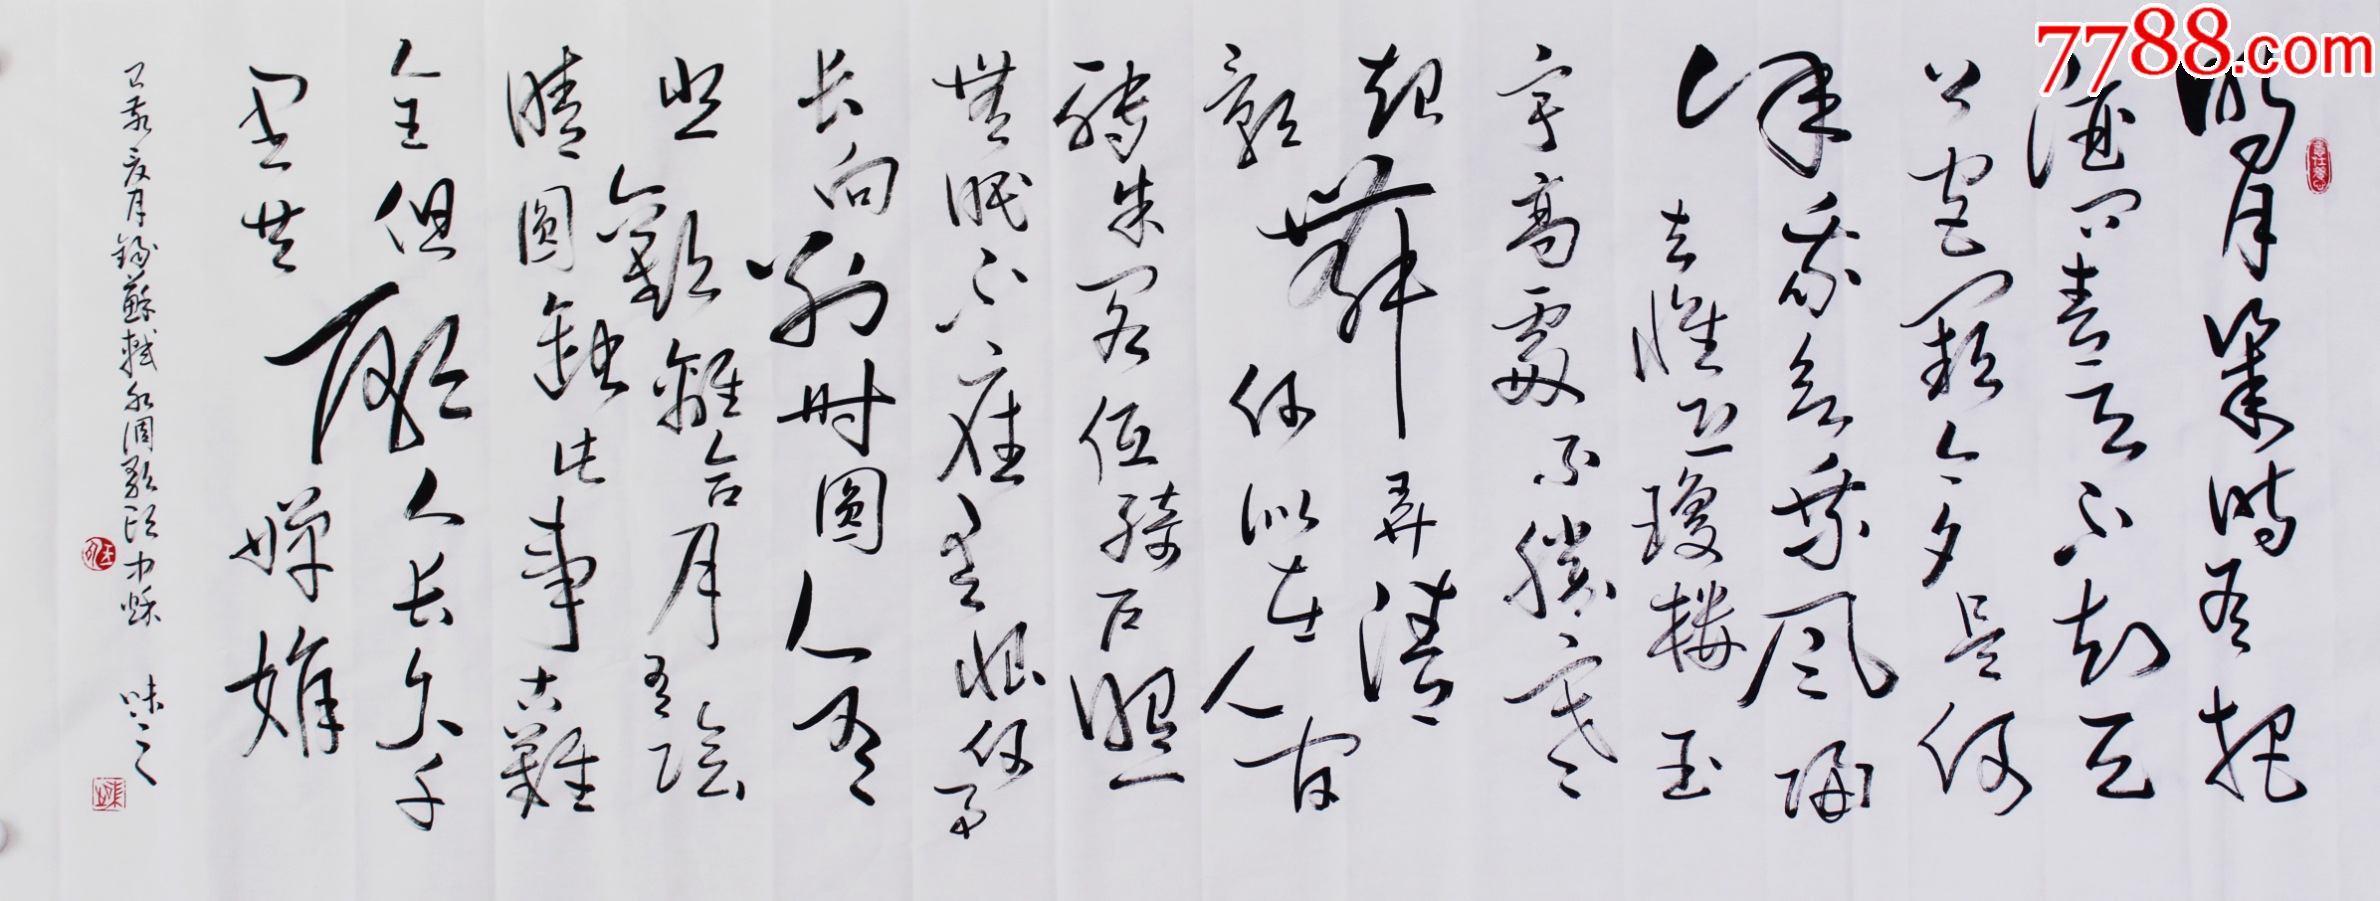 明月幾時有把
酒问青天不知天
上宫阙今夕是何
年我欲乘风歸
去惟恐瓊楼玉
宇高處不勝寒
起舞弄清
影何似在人间
轉朱阁低绮户照
無眠不应有恨何事
长向别时圆人有
悲歡離合月有陰
晴圆缺此事古難
全但願人长久千
里共嬋娟
己亥夏月錄蘇軾水调歌頭中秋 味之
7788.com